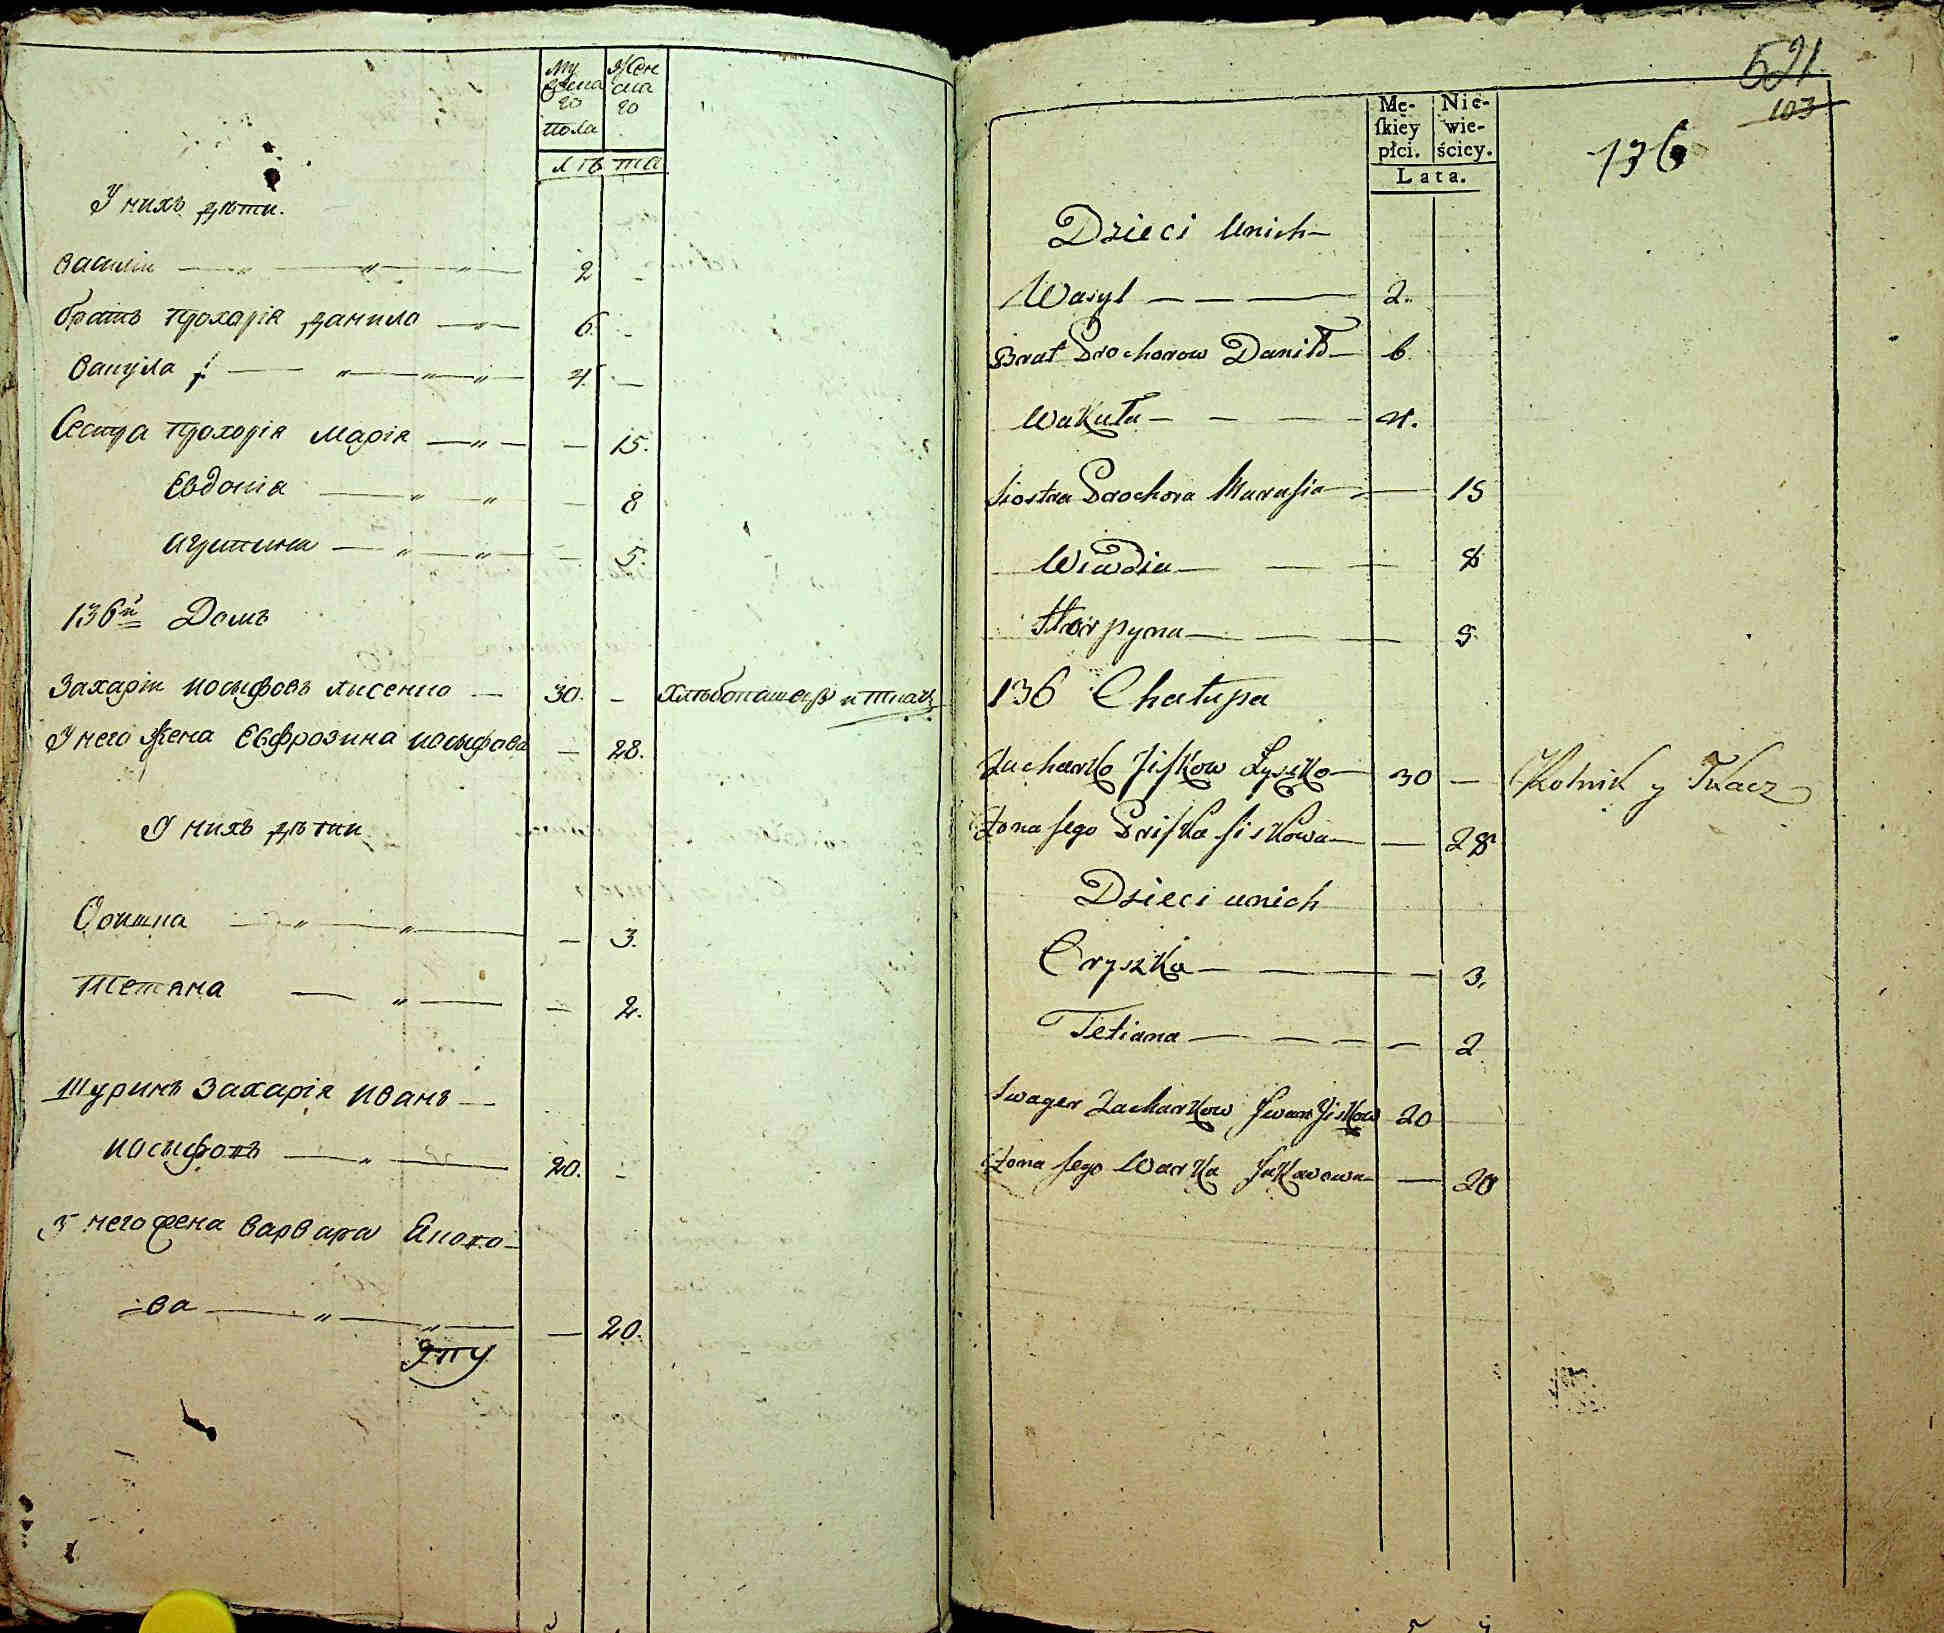 Му
жеска
го
пола
Жен
ска
го
лѣта
У нихъ дѣти.
Василiй 2
братъ Прохорiя Данило 6.
Вакула 4.
Сестра Прохорiя Марiя 15.
Евдокiя 8
Агриппина 5.
136й Домъ
Захарiй Иосифовъ Лисенко 30. Хлѣбопашецъ и ткачъ
У него жена Евфросина Иосифова 28.
У нихъ дѣти
Оришка 3.
Тетяна 2.
Шуринъ Захарiя Иванъ
Иосифовъ 20.
У него жена Варвара Яково-
-ва 20.
521
103
136
Mę-
skiey
płci.
Nie-
wie-
ściey.
Lata.
Dzieci unich
Wasyl 2.
Brat Prochorow Daniło 6
Wakuła 4.
Siostra Prochora Marusia 15
Wiwdia 8
Horpyna 5
136 Chałupa
Zacharko Jiskow Łysko 30 Rolnik y Tkacz
Żona Jego Priska Jiskowa 28
Dzieci unich
Oryszka 3,
Tetiana 2
Swager Zacharkow Jwan Jiskow 20
Żona Jego Warka Jakowowa 20